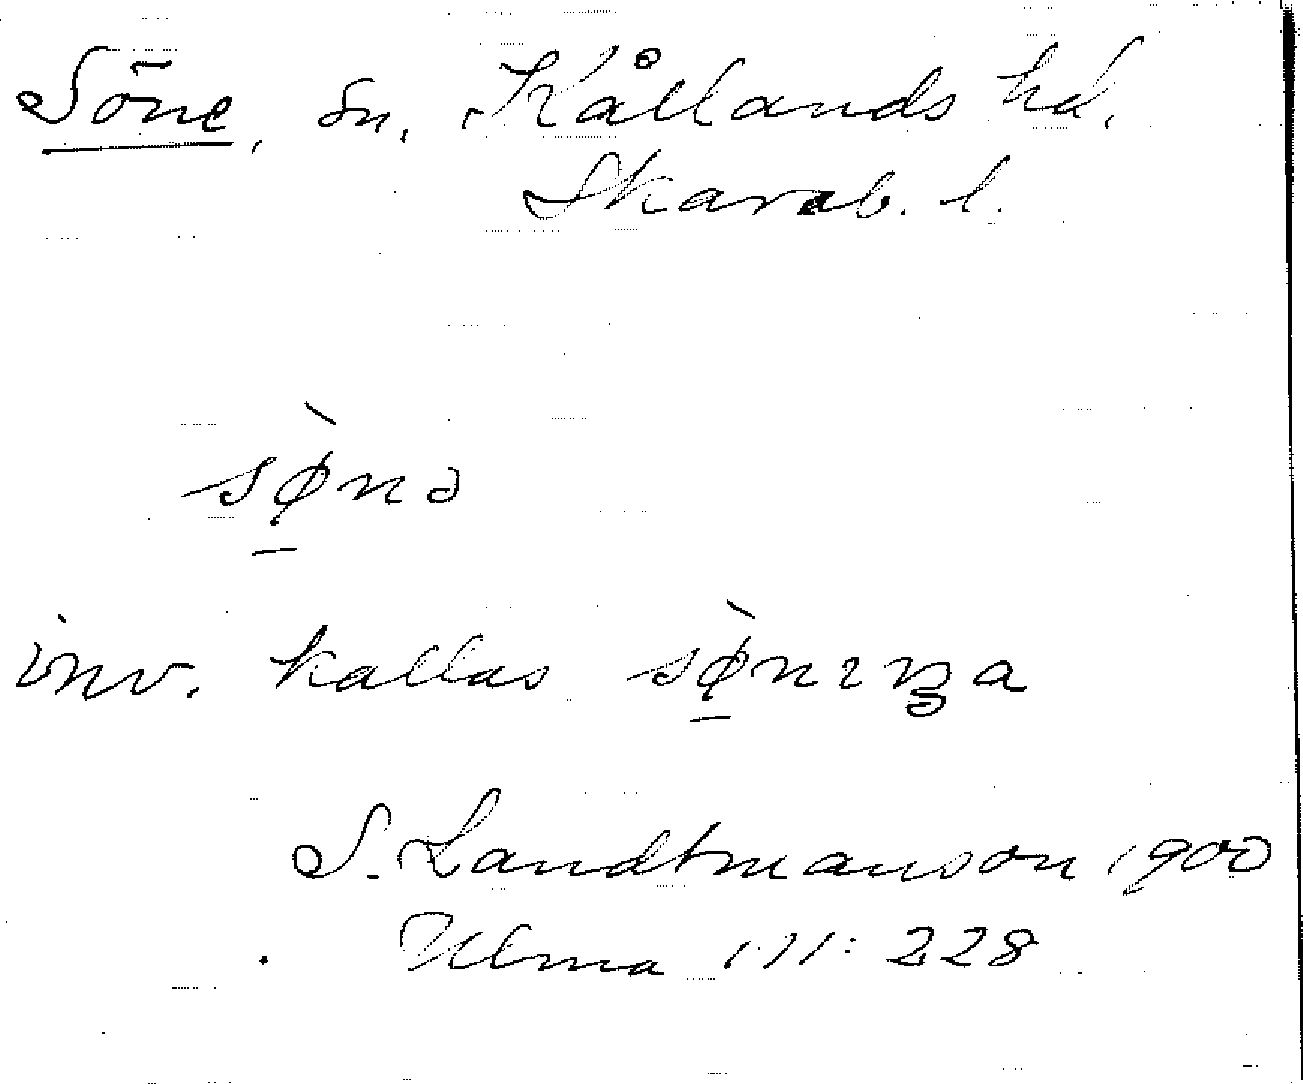 Söne, sn, Kållands hd,
Skarab. l.
sø̀nə
inv. kallas sø̀nıŋa
S. Landtmanson 1900
Ulma 111: 228